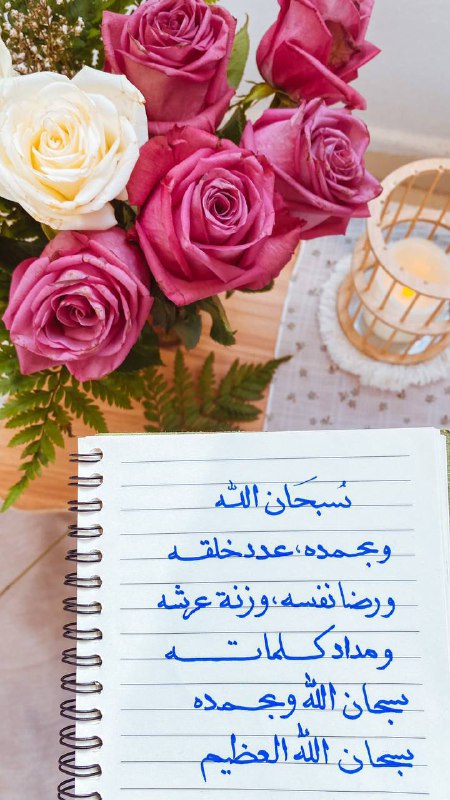 سُبحَان الله
وبحمده، عدد خلقه
ورضا نفسه، وزنة عرشه
ومداد كلماته
سبحان الله وبحمده
سبحان الله العظيم